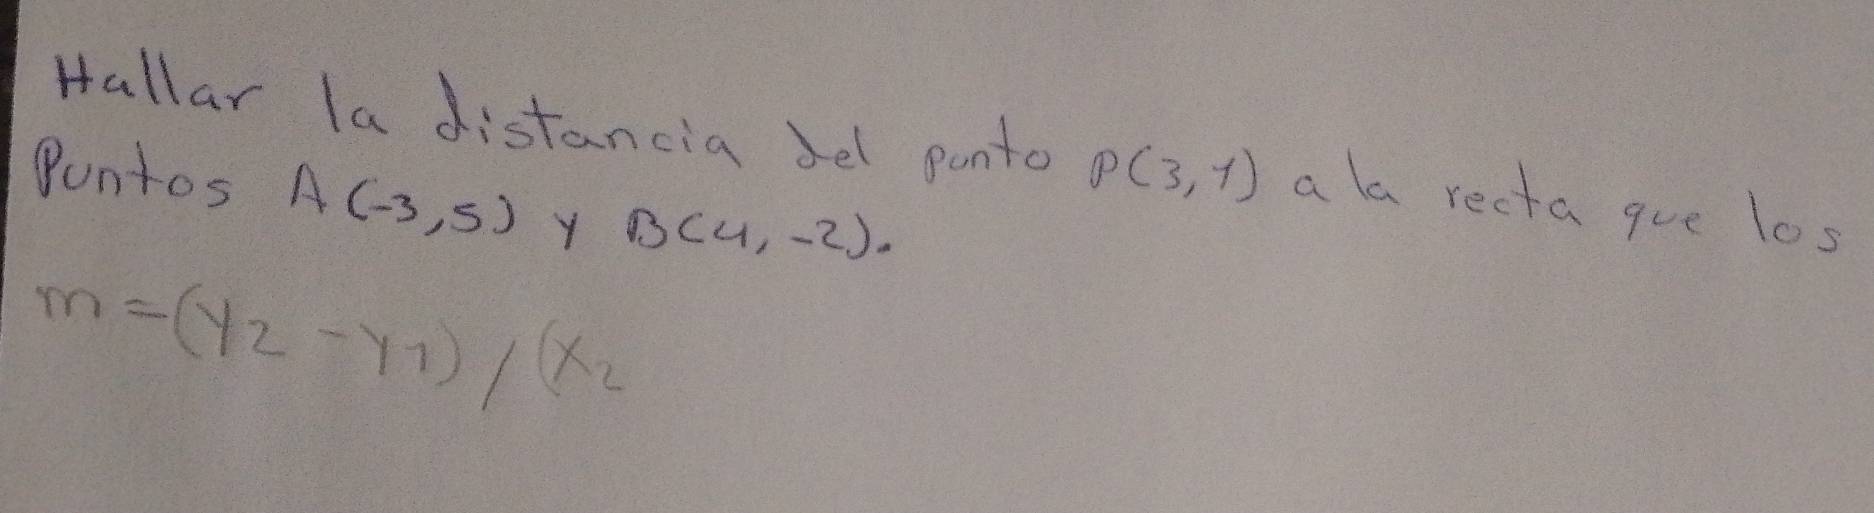 Hallar la distancia del punto P(3,1) a la recta que los
Puntos A(-3,5) y B(4,-2).
m=(Y2-Y1)/(X2